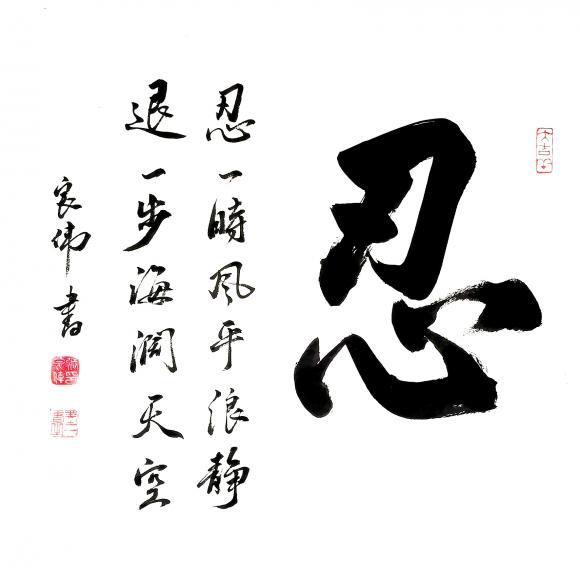 忍
忍一時風平浪静
退一步海闊天空
良伟書